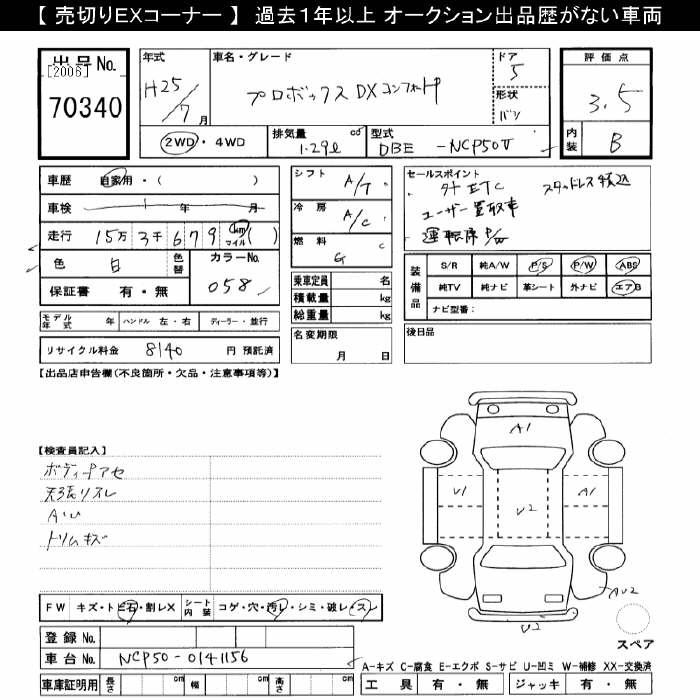 【 売切りEXコーナー 】 過去1年以上 オークション出品歴がない車両
出品No.
[2006]
70340
年式
H25/7月
車名・グレード
プロボックス DX コンフォートP
ドア
5
形状
バン
評価点
3.5
内装
B
2WD・4WD
排気量 cc
1.29ℓ
型式
DBE -NCP50V
車歴 自家用・( )
車検 年 月
走行 15万 3千 6 7 9 km マイル ( )
色 白 色替 カラーNo.
058
保証書 有・無
シフト A/T
冷房 A/C
燃料 G c
セールスポイント
外 ETC スタッドレス積込
ユーザー買取車
運転席 P/W
乗車定員 名
積載量 kg
総重量 kg
装備品
S/R 純A/W P/S P/W ABS
純TV 純ナビ 革シート 外ナビ エアB
ナビ型番:
モデル年式 年 ハンドル 左・右 ディーラー・並行
名変期限
月 日
後日品
リサイクル料金 8140 円 預託済
【出品店申告欄(不良箇所・欠品・注意事項等)】
【検査員記入】
ボディー アセ
天張リスレ
AU
トリムキズ
A1
U1
U2
A1
AU2
U2
スペア
FW キズ・トビ石・割レX シート内装 コゲ・穴・汚レ・シミ・破レ・スレ
登録No.
車台No. NCP50-0141156
A-キズ C-腐食 E-エクボ S-サビ U-凹ミ W-補修 XX-交換済
車庫証明用 長さ cm 幅 cm 高さ cm
工具 有・無 ジャッキ 有・無